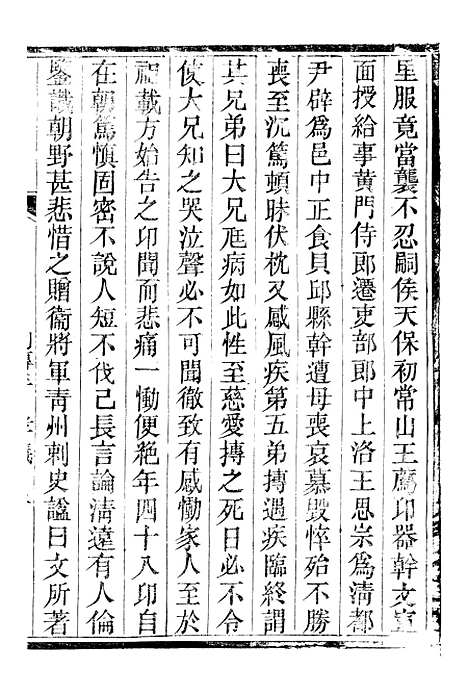 星服竟當襲不忍嗣侯天保初常山王薦卬器幹文宣
面授給事黃門侍郎遷吏部郎中上洛王思宗爲清都
尹辟爲邑中正食貝邱縣幹遭母喪哀慕毀悴殆不勝
喪至沉篤頓昧伏枕又感風疾第五弟摶遇疾臨終謂
其兄弟曰大兄尫病如此性至慈愛摶之死日必不令
使大兄知之哭泣聲必不可聞徹致有感慟家人至於
祖載方始告之卬聞而悲痛一慟便絕年四十八卬自
在朝篤愼固密不說人短不伐己長言論清遠有人倫
鑒識朝野甚悲惜之贈衞將軍靑州刺史諡曰文所著